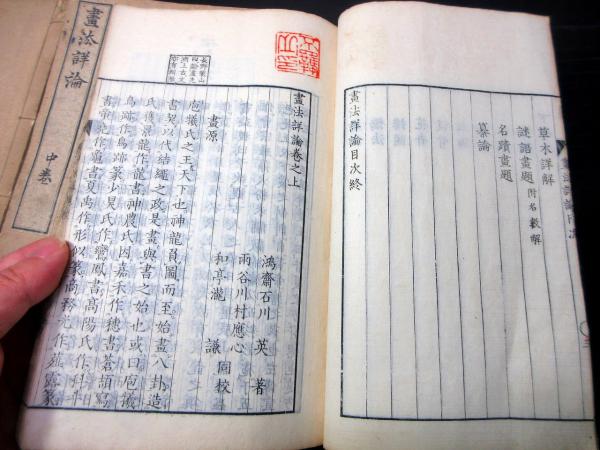 草木詳解
謎語畫題 附名數解
名蹟畫題
纂論
畫法詳論目次終
畫法詳論卷之上
鴻齋石川 英 著
雨谷川村應心
和亭瀧 謙 圖校
畫源
庖犧氏之王天下也神龍負圖而至始畫八卦造
書契以代結繩之政是畫與書之始也或曰庖犧
氏獲景龍作龍書神農氏因嘉禾作穗書蒼頡寫
鳥跡作鳥跡篆少昊氏作鸞鳳書高陽氏作科斗
書帝堯作龜書夏禹作形似篆商務光作薤露篆
畫法詳論
中卷